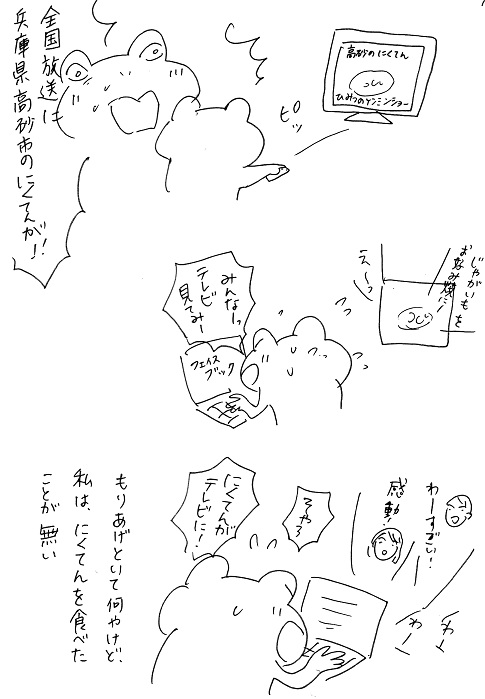 全国放送に
兵庫県高砂市のにくてんが!!
ピッ
高砂のにくてん
ひみつのケンミンショー
じゃがいもを
お好み焼に!
えーっ
みんなーっ
テレビ
見てみー
フェイス
ブック
わーすごい!
感動!
そやろ
にくてんが
テレビに!
わー
わー
もりあげといて何やけど、
私は、にくてんを食べた
ことが無い